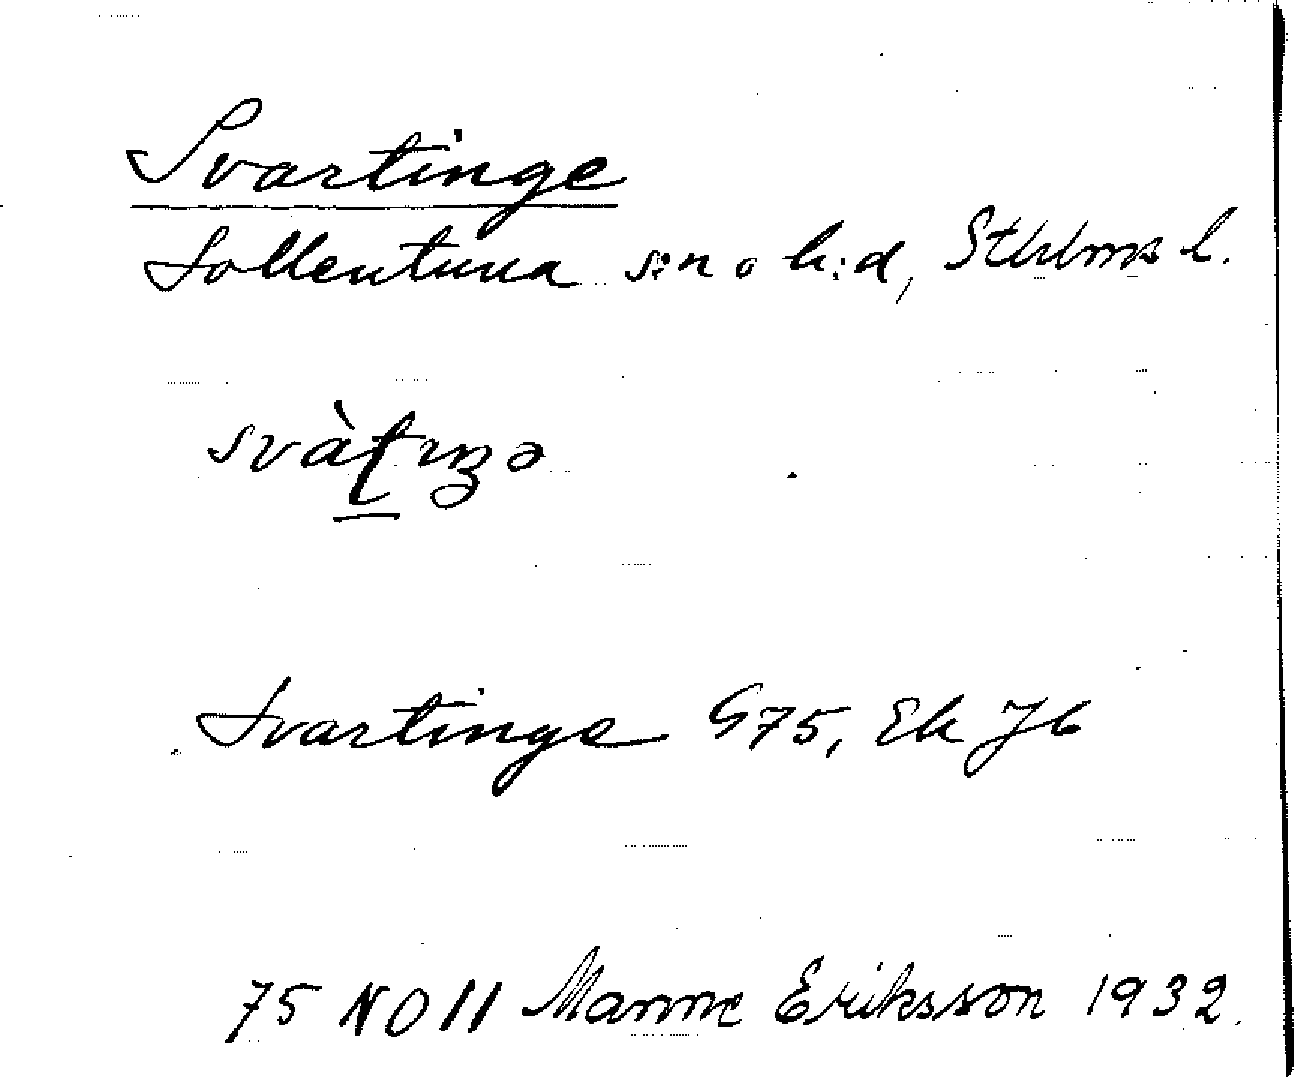 Svartinge
Sollentuna s:n o h:d, Sthlms l.
Svartinge G75, Ek Jb
75 NO 11 Manne Eriksson 1932.